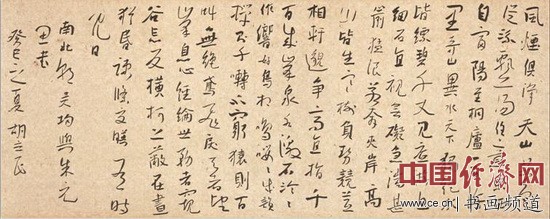 風煙俱淨天山共色
從流飄蕩任意東西
自富陽至桐廬一百許
里奇山異水天下獨絕水
皆縹碧千丈見底游魚
細石直視無礙急湍甚
箭猛浪若奔夾岸高
山皆生寒樹負勢競上互
相軒邈爭高直指千
百成峯泉水激石泠泠
作響好鳥相鳴嚶嚶成韻
蟬則千囀不窮猿則百
叫無絕鳶飛戾天者望
峯息心經綸世務者窺
谷忘反橫柯上蔽在晝
猶昏疎條交映有時
見日
南北朝吳均與朱元
思書
癸巳之夏 胡立民
中国经济网
www.ce.cn 书画频道